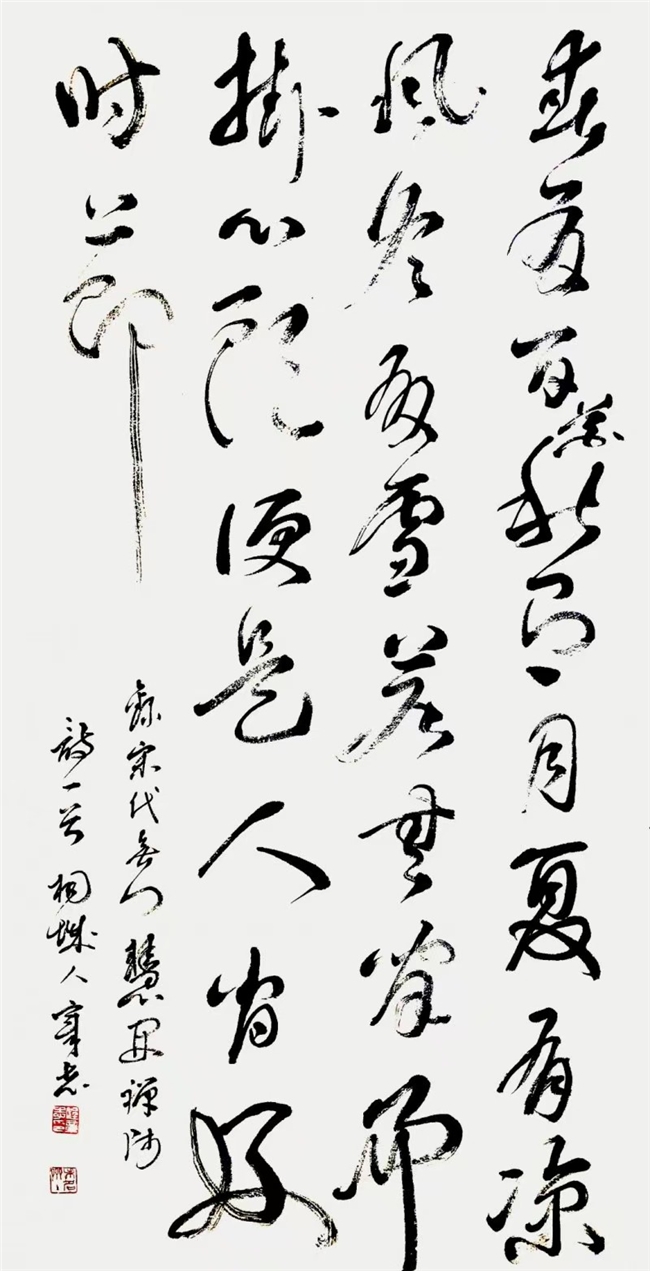 春有百花秋有月夏有凉
风冬有雪若无闲事
掛心头便是人间好
时节
录宋代无门慧开禅师
诗一首桐城人